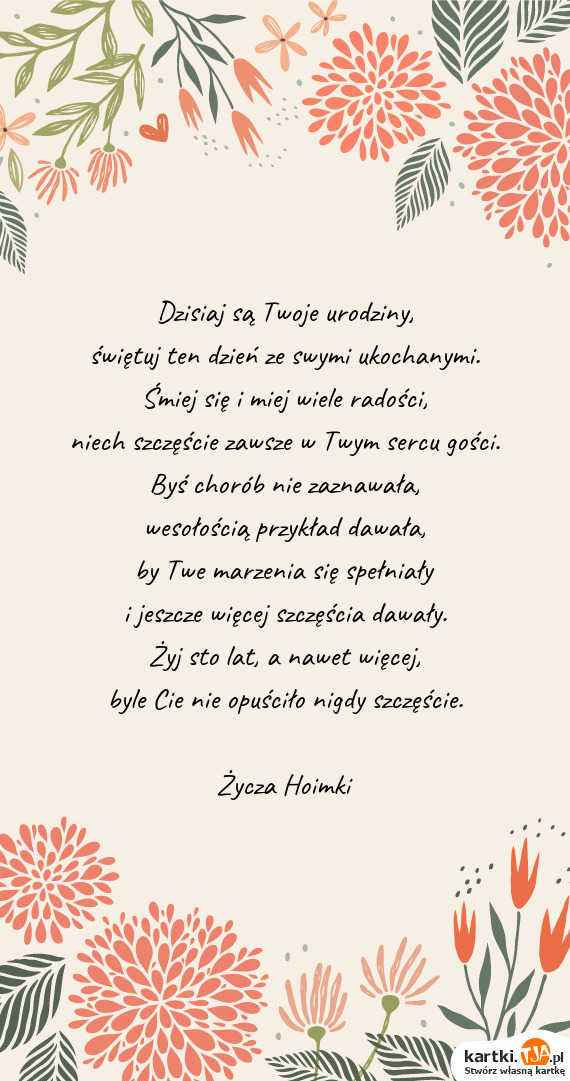 Dzisiaj są Twoje urodziny,
świętuj ten dzień ze swymi ukochanymi.
Śmiej się i miej wiele radości,
niech szczęście zawsze w Twym sercu gości.
Byś chorób nie zaznawała,
wesołością przykład dawała,
by Twe marzenia się spełniały
i jeszcze więcej szczęścia dawały.
Żyj sto lat, a nawet więcej,
byle Cie nie opuściło nigdy szczęście.
Życza Hoimki
kartki.TJA.pl
Stwórz własną kartkę